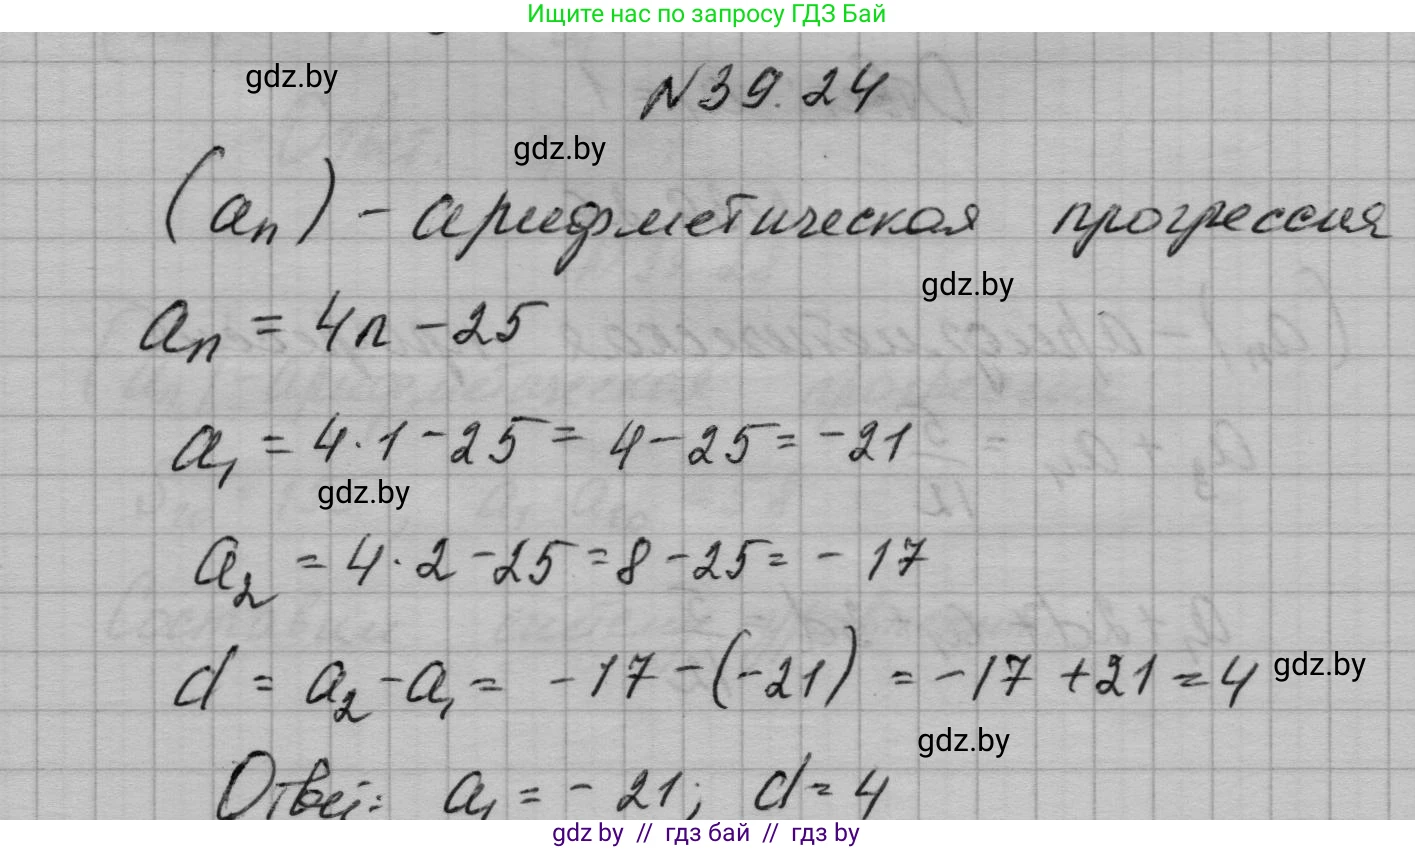 Ищите нас по запросу ГДЗ Бай
gdz.by
N 39.24
gdz.by
(aₙ) - арифметическая прогрессия
gdz.by
aₙ = 4n - 25
a₁ = 4·1 - 25 = 4 - 25 = -21
gdz.by
a₂ = 4·2 - 25 = 8 - 25 = -17
d = a₂ - a₁ = -17 - (-21) = -17 + 21 = 4
gdz.by
gdz.by
Ответ: a₁ = -21; d = 4
gdz by // гдз бай // гдз by